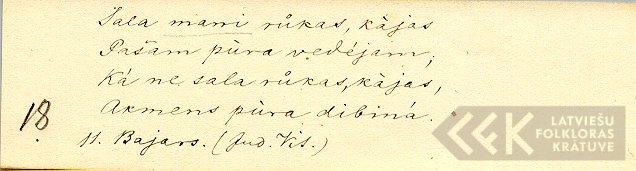 Sala manni růkas, kàjas
Pašam pūra vedéjam;
Ká ne sala růkas, kàjas,
Akmens pūra dibiná.
18.
11. Bajars. (Jud. Vis.)
LATVIEŠU
FOLKLORAS
KRĀTUVE